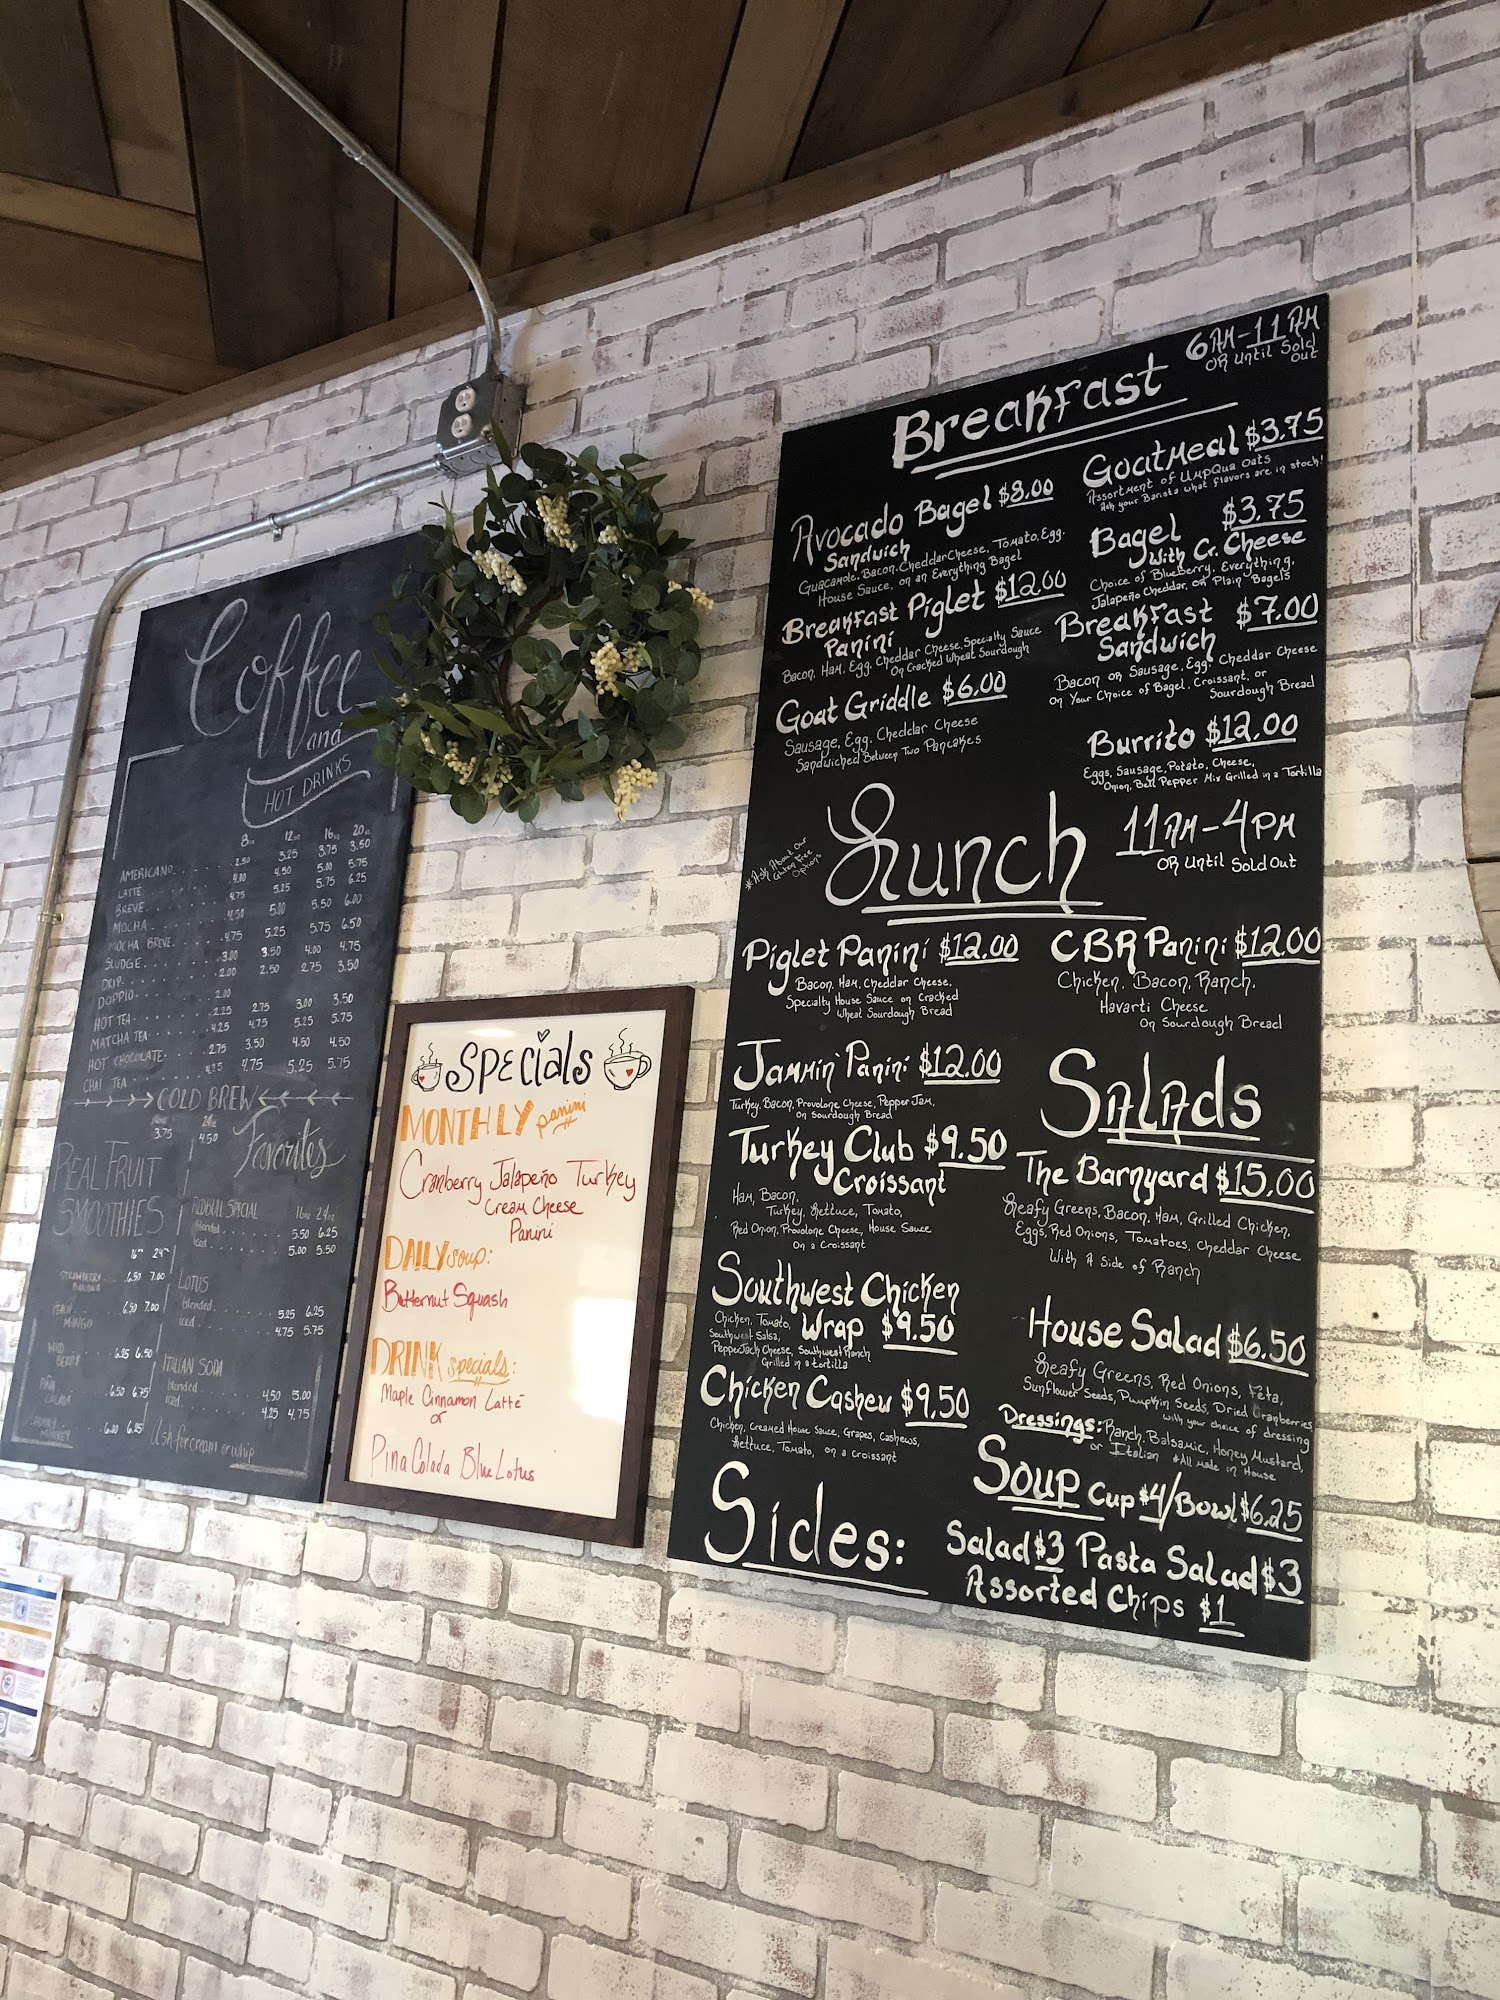 Coffee
and
HOT DRINKS
8oz 12oz 16oz 20oz
AMERICANO 2.50 3.25 3.75 3.50
LATTE 4.00 4.50 5.00 5.75
BREVE 4.75 5.25 5.75 6.25
MOCHA 4.50 5.00 5.50 6.00
MOCHA BREVE 4.75 5.25 5.75 6.50
SLUDGE 3.00 3.50 4.00 4.75
DRIP 2.00 2.50 2.75 3.50
DOPPIO 2.00
HOT TEA 2.25 2.75 3.00 3.50
MATCHA TEA 4.25 4.75 5.25 5.75
HOT CHOCOLATE 2.75 3.50 4.50 4.50
CHAI TEA 4.25 4.75 5.25 5.75
COLD BREW
16oz 24oz
3.75 4.50
REAL FRUIT
SMOOTHIES
16oz 24oz
STRAWBERRY
BANANA 6.50 7.00
PEACH
MANGO 6.50 7.00
WILD
BERRY 6.25 6.50
PIÑA
COLADA 6.50 6.75
MONKEY 6.00 6.25
Favorites
REDBULL SPECIAL 16oz 24oz
Blended 5.50 6.25
iced 5.00 5.50
LOTUS
blended 5.25 6.25
iced 4.75 5.75
ITALIAN SODA
blended 4.50 5.00
iced 4.25 4.75
Ask for cream or whip
Specials
MONTHLY panini
Cranberry Jalapeño Turkey
Cream Cheese
Panini
DAILY soup:
Butternut Squash
DRINK specials:
Maple Cinnamon Latte
or
Pina Colada Blue Lotus
Breakfast
6AM-11AM
OR Until Sold
Out
Avocado Bagel $8.00
Sandwich
Guacamole, Bacon, Cheddar Cheese, Tomato, Egg,
House Sauce, on an Everything Bagel
Breakfast Piglet $12.00
Panini
Bacon, Ham, Egg, Cheddar Cheese, Specialty Sauce
On Cracked Wheat Sourdough
Goat Griddle $6.00
Sausage, Egg, Cheddar Cheese
Sandwiched Between Two Pancakes
Goatmeal $3.75
Assortment of Umpqua Oats
Ask your Barista what flavors are in stock!
Bagel $3.75
With Cr. Cheese
Choice of BlueBerry, Everything,
Jalapeño Cheddar, or Plain Bagels
Breakfast $7.00
Sandwich
Bacon or Sausage, Egg, Cheddar Cheese
on Your Choice of Bagel, Croissant, or
Sourdough Bread
Burrito $12.00
Eggs, Sausage, Potato, Cheese,
Onion, Bell Pepper Mix Grilled in a Tortilla
*Ask About Our
Gluten Free
Options
Lunch
11AM-4PM
OR Until Sold Out
Piglet Panini $12.00
Bacon, Ham, Cheddar Cheese,
Specialty House Sauce on Cracked
Wheat Sourdough Bread
Jammin' Panini $12.00
Turkey, Bacon, Provolone Cheese, Pepper Jam,
on Sourdough Bread
Turkey Club $9.50
Croissant
Ham, Bacon,
Turkey, Lettuce, Tomato,
Red Onion, Provolone Cheese, House Sauce
On a Croissant
Southwest Chicken
Wrap $9.50
Chicken, Tomato,
Southwest Salsa,
PepperJack Cheese, Southwest Ranch
Grilled in a tortilla
Chicken Cashew $9.50
Chicken, Creamed House Sauce, Grapes, Cashews,
Lettuce, Tomato, on a Croissant
CBR Panini $12.00
Chicken, Bacon, Ranch,
Havarti Cheese
On Sourdough Bread
Salads
The Barnyard $15.00
Leafy Greens, Bacon, Ham, Grilled Chicken,
Eggs, Red Onions, Tomatoes, Cheddar Cheese
With A Side of Ranch
House Salad $6.50
Leafy Greens, Red Onions, Feta,
Sunflower Seeds, Pumpkin Seeds, Dried Cranberries
with your choice of dressing
Dressings: Ranch, Balsamic, Honey Mustard,
or Italian *All made in House
Soup Cup $4/Bowl $6.25
Sides:
Salad $3 Pasta Salad $3
Assorted Chips $1